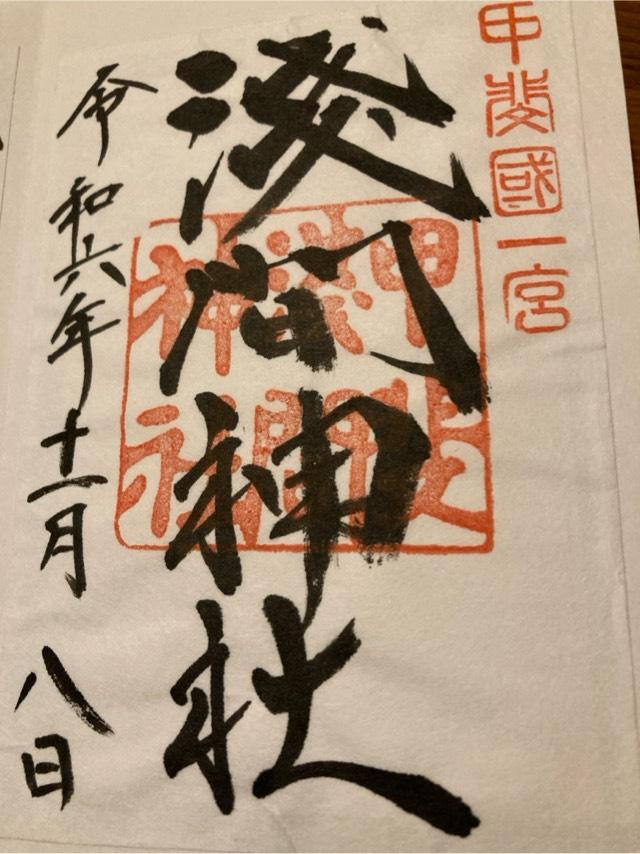 甲斐國一宮
淺間神社
甲斐
淺間
神社
令和六年十一月八日